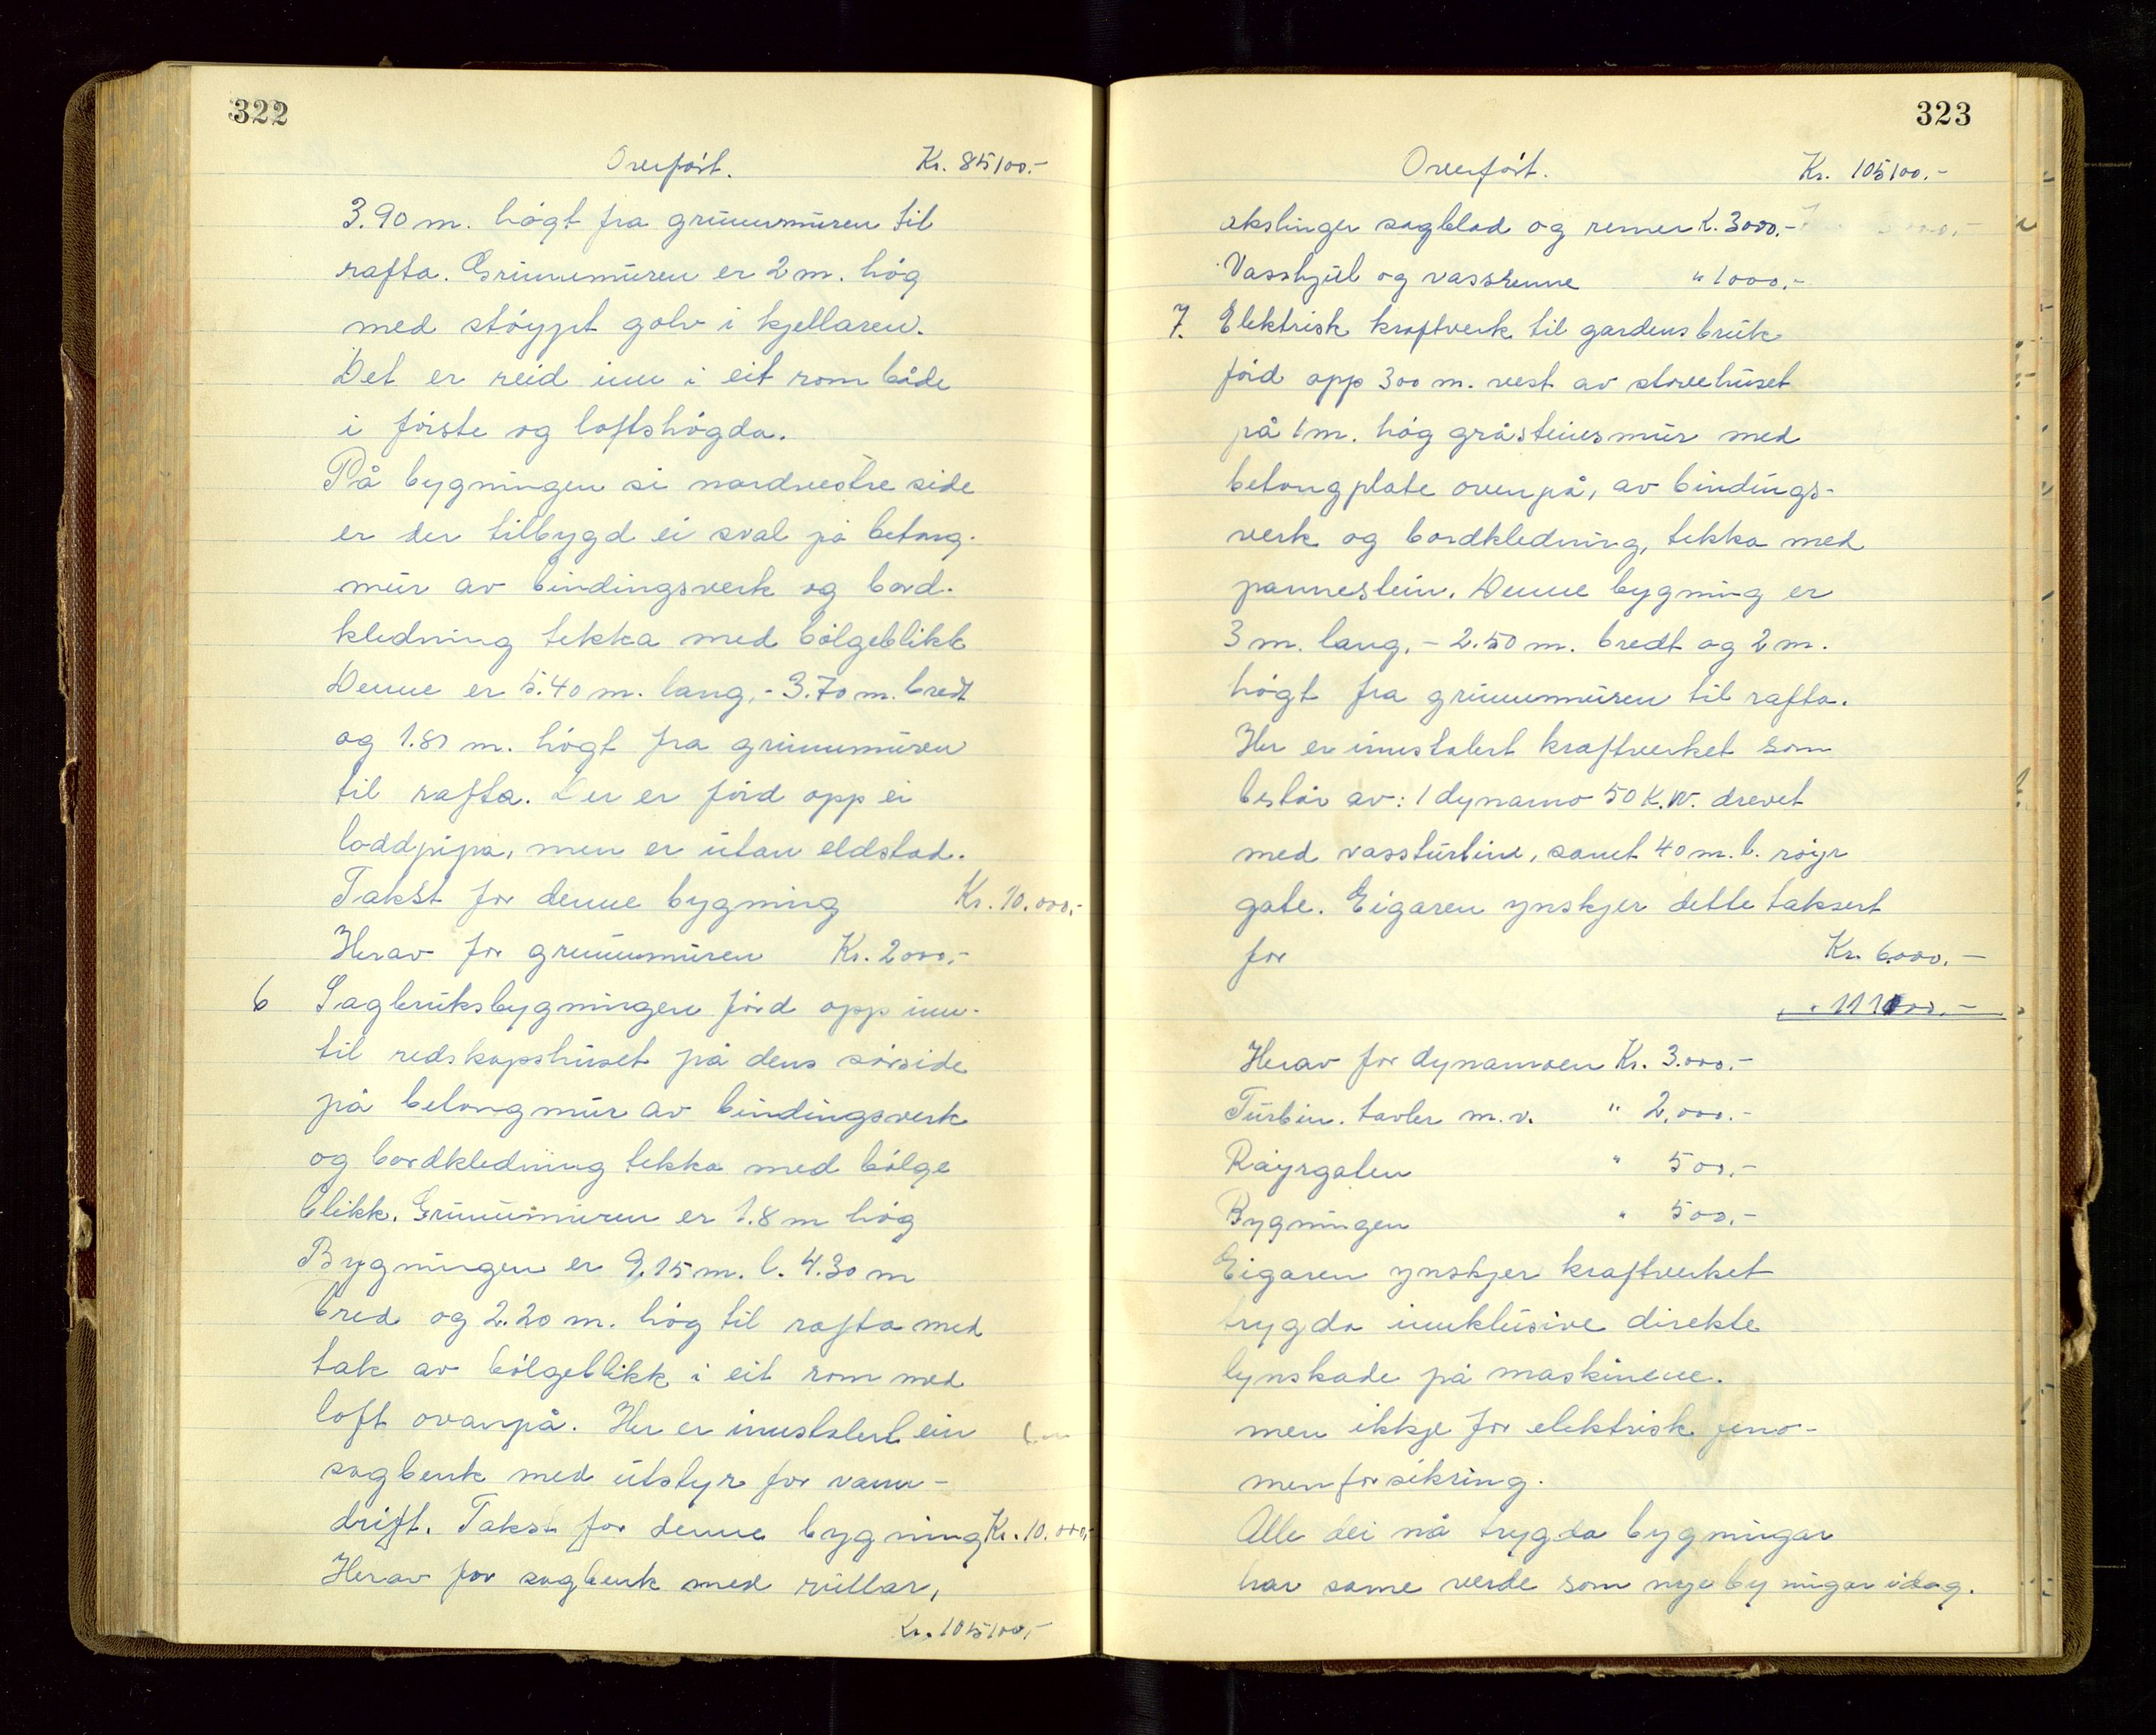 322
Overført. Kr. 85100.-
3.90 m. høgt fra grunnmuren til
rafta. Grunnmuren er 2 m. høg
med støypt golv i kjellaren.
Det er reid inn i eit rom både
i første og loftshøgda.
På bygningen si nordvestre side
er der tilbygd ei sval på betong-
mur av bindingsverk og bord-
kledning tekka med bølgeblikk
Denne er 5.40 m. lang, - 3.70 m. bredt
og 1.80 m. høgt fra grunnmuren
til rafta. Der er førd opp ei
loddpipa, men er utan eldstad.
Takst for denne bygning Kr. 10.000,-
Herav for grunnmuren Kr. 2000,-
6 Sagbruksbygningen førd opp inn-
til redskapshuset på dens sørside
på betongmur av bindingsverk
og bordkledning tekka med bølge
blikk. Grunnmuren er 1.8 m høg
Bygningen er 9,15 m. l. 4.30 m
bred og 2.20 m. høg til rafta med
tak av bølgeblikk i eit rom med
loft ovanpå. Her er innstalert ein
sagbenk med utstyr for vann-
drift. Takst for denne bygning Kr. 10.000,-
Herav for sagbenk med rullar,
Kr. 105100,-
323
Overført. Kr. 105100.-
akslinger sagblad og remer K. 3000.-
Vasshjul og vassrenne " 1000.-
7. Elektrisk kraftverk til gardens bruk
førd opp 300 m. vest av stovehuset
på 1 m. høg gråsteinsmur med
betongplate ovenpå, av bindings-
verk og bordkledning, tekka med
pannestein. Denne bygning er
3 m. lang, - 2.50 m. bredt og 2 m.
høgt fra grunnmuren til rafta.
Her er innstalert kraftverket som
består av: 1 dynamo 50 K.W. drevet
med vassturbine, samt 40 m. l. røyr
gate. Eigaren ynskjer dette taksert
for Kr. 6000.-
" 111100.-
Herav for dynamoen Kr. 3.000.-
Turbin. tavler m.v. " 2,000.-
Røyrgaten " 500.-
Bygningen " 500.-
Eigaren ynskjer kraftverket
trygda innklusive direkte
lynskade på maskinene.
men ikkje for elektrisk feno-
menforsikring.
Alle dei nå trygda bygningar
har same verde som nye bygnigar idag.